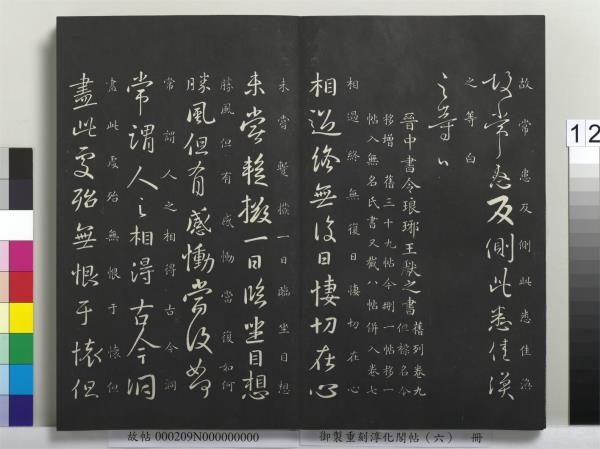 故常患反側此悉佳漁
故常患反側此悉佳漁
之等白
之等白
晉中書令琅琊王獻之書 舊列卷九但標名今
移增 舊三十九帖今刪一帖移一
帖入無名氏書又截八帖併入卷七
相過終無復日悽切在心
相過終無復日悽切在心
未嘗暫撥一日臨坐目想
未嘗暫撥一日臨坐目想
勝風但有感慟當復如何
勝風但有感慟當復如何
常謂人之相得古今洞
常謂人之相得古今洞
盡此處殆無恨于懷但
盡此處殆無恨于懷但
12
故帖 000209N000000000
御製重刻淳化閣帖（六） 冊